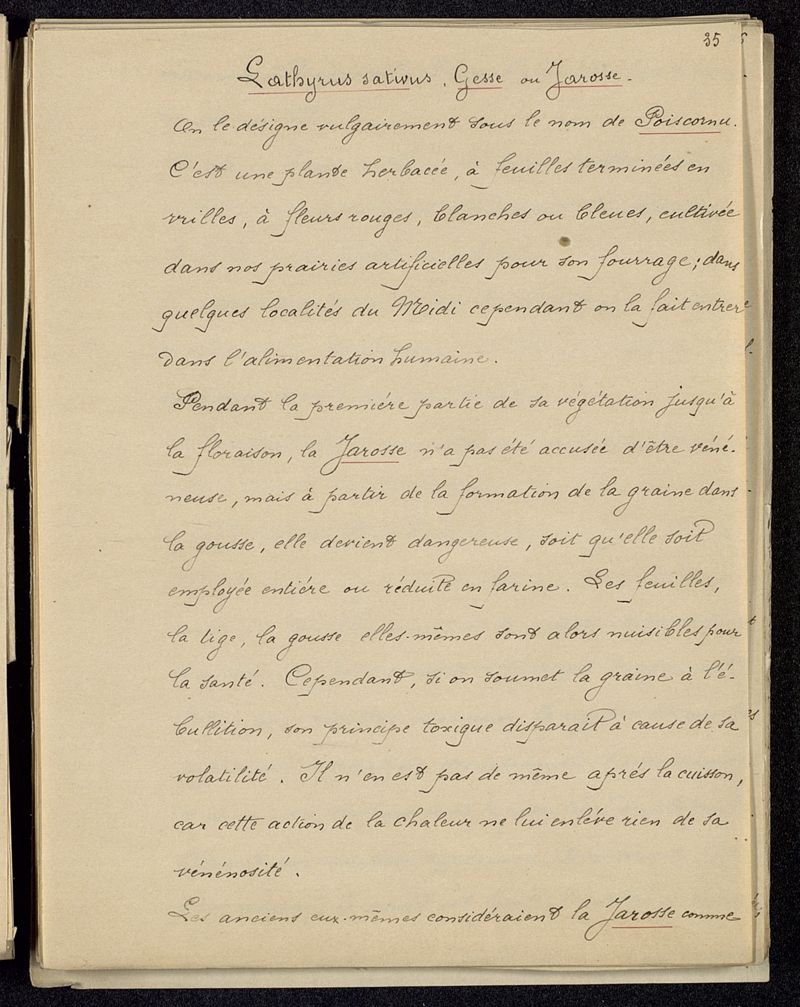 35
Lathyrus sativus, Gesse ou Jarosse.
On le désigne vulgairement sous le nom de Poiscornu.
C'est une plante herbacée, à feuilles terminées en
vrilles, à fleurs rouges, blanches ou bleues, cultivée
dans nos prairies artificielles pour son fourrage; dans
quelques localités du Midi cependant on la fait entrer
dans l'alimentation humaine.
Pendant la premiére partie de sa végétation jusqu'à
la floraison, la Jarosse n'a pas été accusée d'être véné-
neuse, mais à partir de la formation de la graine dans
la gousse, elle devient dangereuse, soit qu'elle soit
employée entiére ou réduite en farine. Les feuilles,
la tige, la gousse elles-mêmes sont alors nuisibles pour
la santé. Cependant, si on soumet la graine à l'é-
bullition, son principe toxique disparait à cause de sa
volatilité. Il n'en est pas de même aprés la cuisson,
car cette action de la chaleur ne lui enléve rien de sa
vénénosité.
Les anciens eux-mêmes considéraient la Jarosse comme